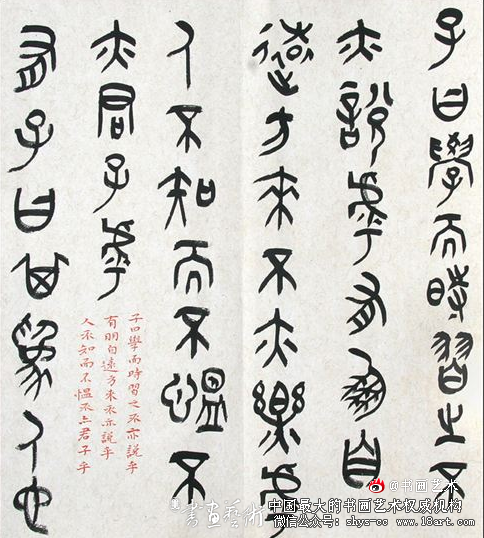 子曰學而時習之不
亦說乎有朋自
遠方來不亦樂乎
人不知而不慍不
亦君子乎
子曰學而時習之不亦說乎
有朋自遠方來不亦說乎
人不知而不愠不亦君子乎
有子曰其為人也
@书画艺术
書畫藝術
中国最大的书画艺术权威机构
微信公众号: shys-cc www.18art.cn